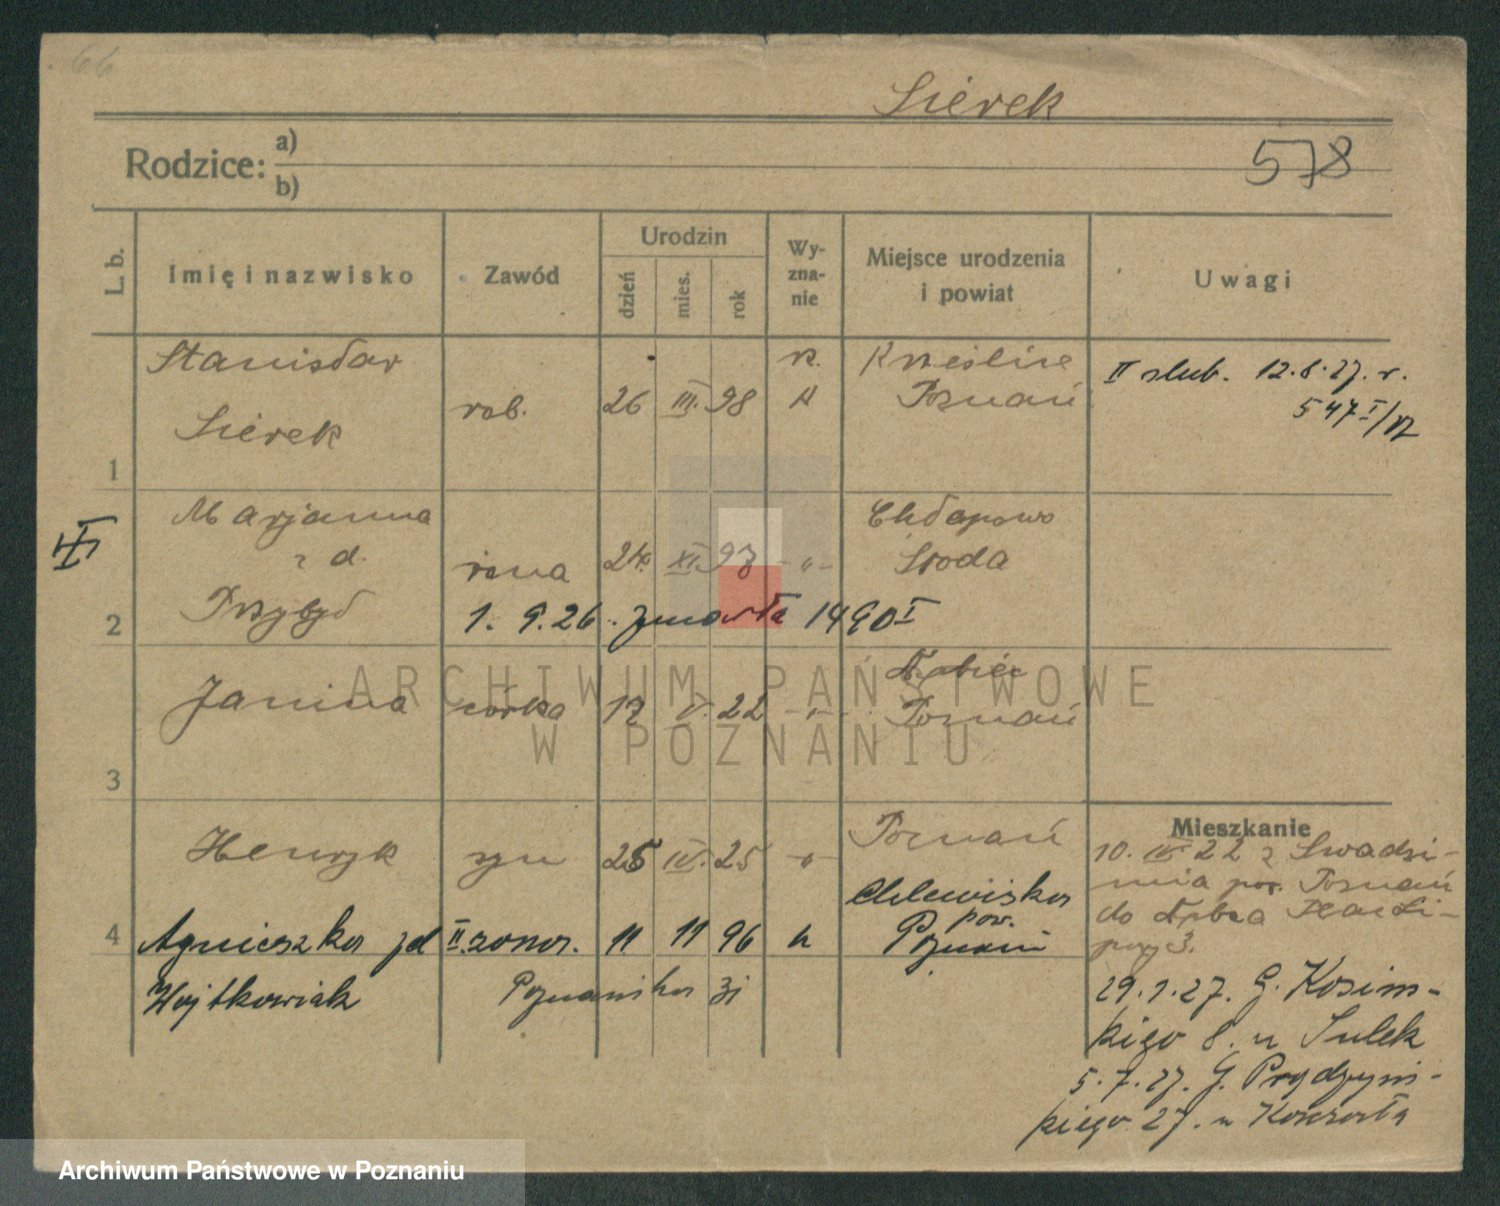 66
Sierek
Rodzice: a)
b)
578
L. b.
Imię i nazwisko
Zawód
Urodzin
dzień
mies.
rok
Wy-
zna-
nie
Miejsce urodzenia
i powiat
Uwagi
1
Stanisław
Sierek
rob.
26 III. 98
Poznań
II slub. 12.8.27. r.
547 I/
2
Marjanna
z d.
Przybył
żona
24. XI. 97
-"-
Chłapowo
Środa
1. 9. 26. zmarła 1490 I
3
Janina
córka
17 V. 22
-"-
Poznań
4
Henryk
syn
25 IV. 25
-"-
Poznań
Agnieszka zd
Wojtkowiak
II. żona.
11 11 96
Chlewiska
pow.
Poznań
Poznańska 31
Mieszkanie
10. 22 z Swadzi-
mia pow. Poznań
do
3.
29.1.27. G. Kosiń-
skiego 8. u Sulek
5.7.27. G. Prądzyń-
skiego 27. u
ARCHIWUM PAŃSTWOWE
W POZNANIU
Archiwum Państwowe w Poznaniu